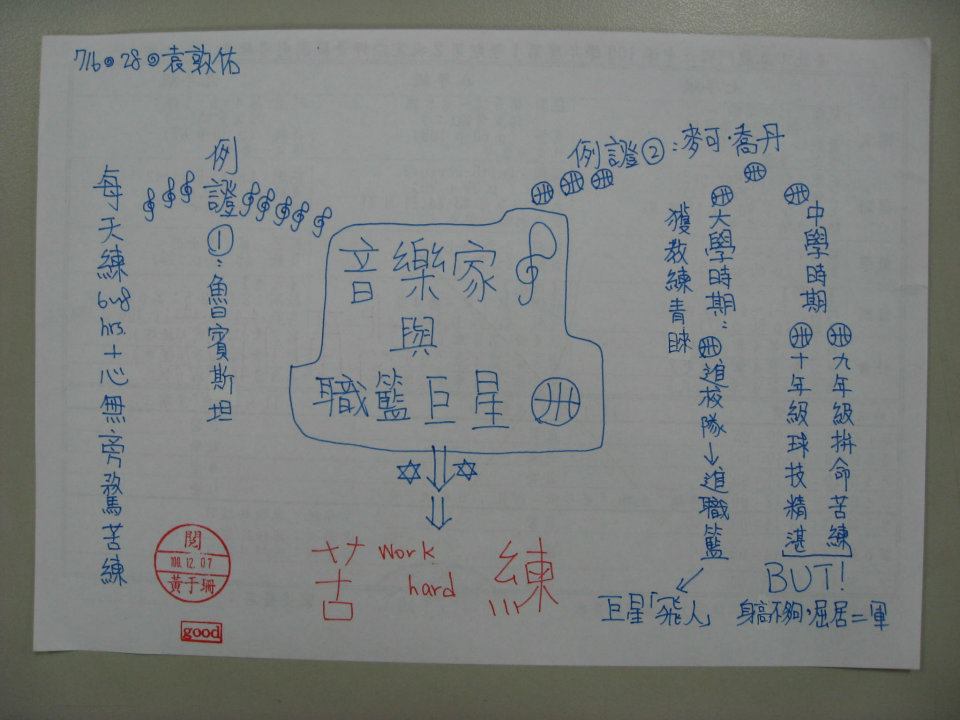 716。28。袁敦佑
例證①：魯賓斯坦
每天練6~9hrs.＋心無旁騖苦練
音樂家
與
職籃巨星
苦練
work
hard
例證②：麥可·喬丹
中學時期
九年級拚命苦練
十年級球技精湛
BUT!
身高不夠，屈居二軍
大學時期：
獲教練青睞
進校隊→進職籃
巨星「飛人」
閱
100.12.07
黃于珊
good